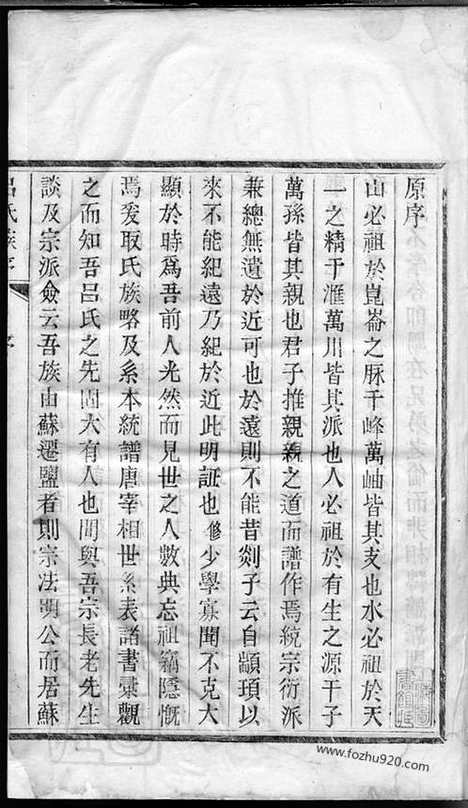 原序
山必祖於崑崙之脈千峰萬岫皆其支也水必祖於天
一之精千滙萬川皆其派也人必祖於有生之源千子
萬孫皆其親也君子推親親之道而譜作焉統宗衍派
兼總無遺於近可也於遠則不能昔剡子云自顓頊以
來不能紀遠乃紀於近此明証也修少學寡聞不克大
顯於時爲吾前人光然而見世之人數典忘祖竊隱慨
焉爰取氏族略及系本統譜唐宰相世系表諸書彚觀
之而知吾呂氏之先固大有人也間與吾宗長老先生
談及宗派僉云吾族由蘇遷鹽者則宗法明公而居蘇
呂氏族
序
www.fozhu920.com